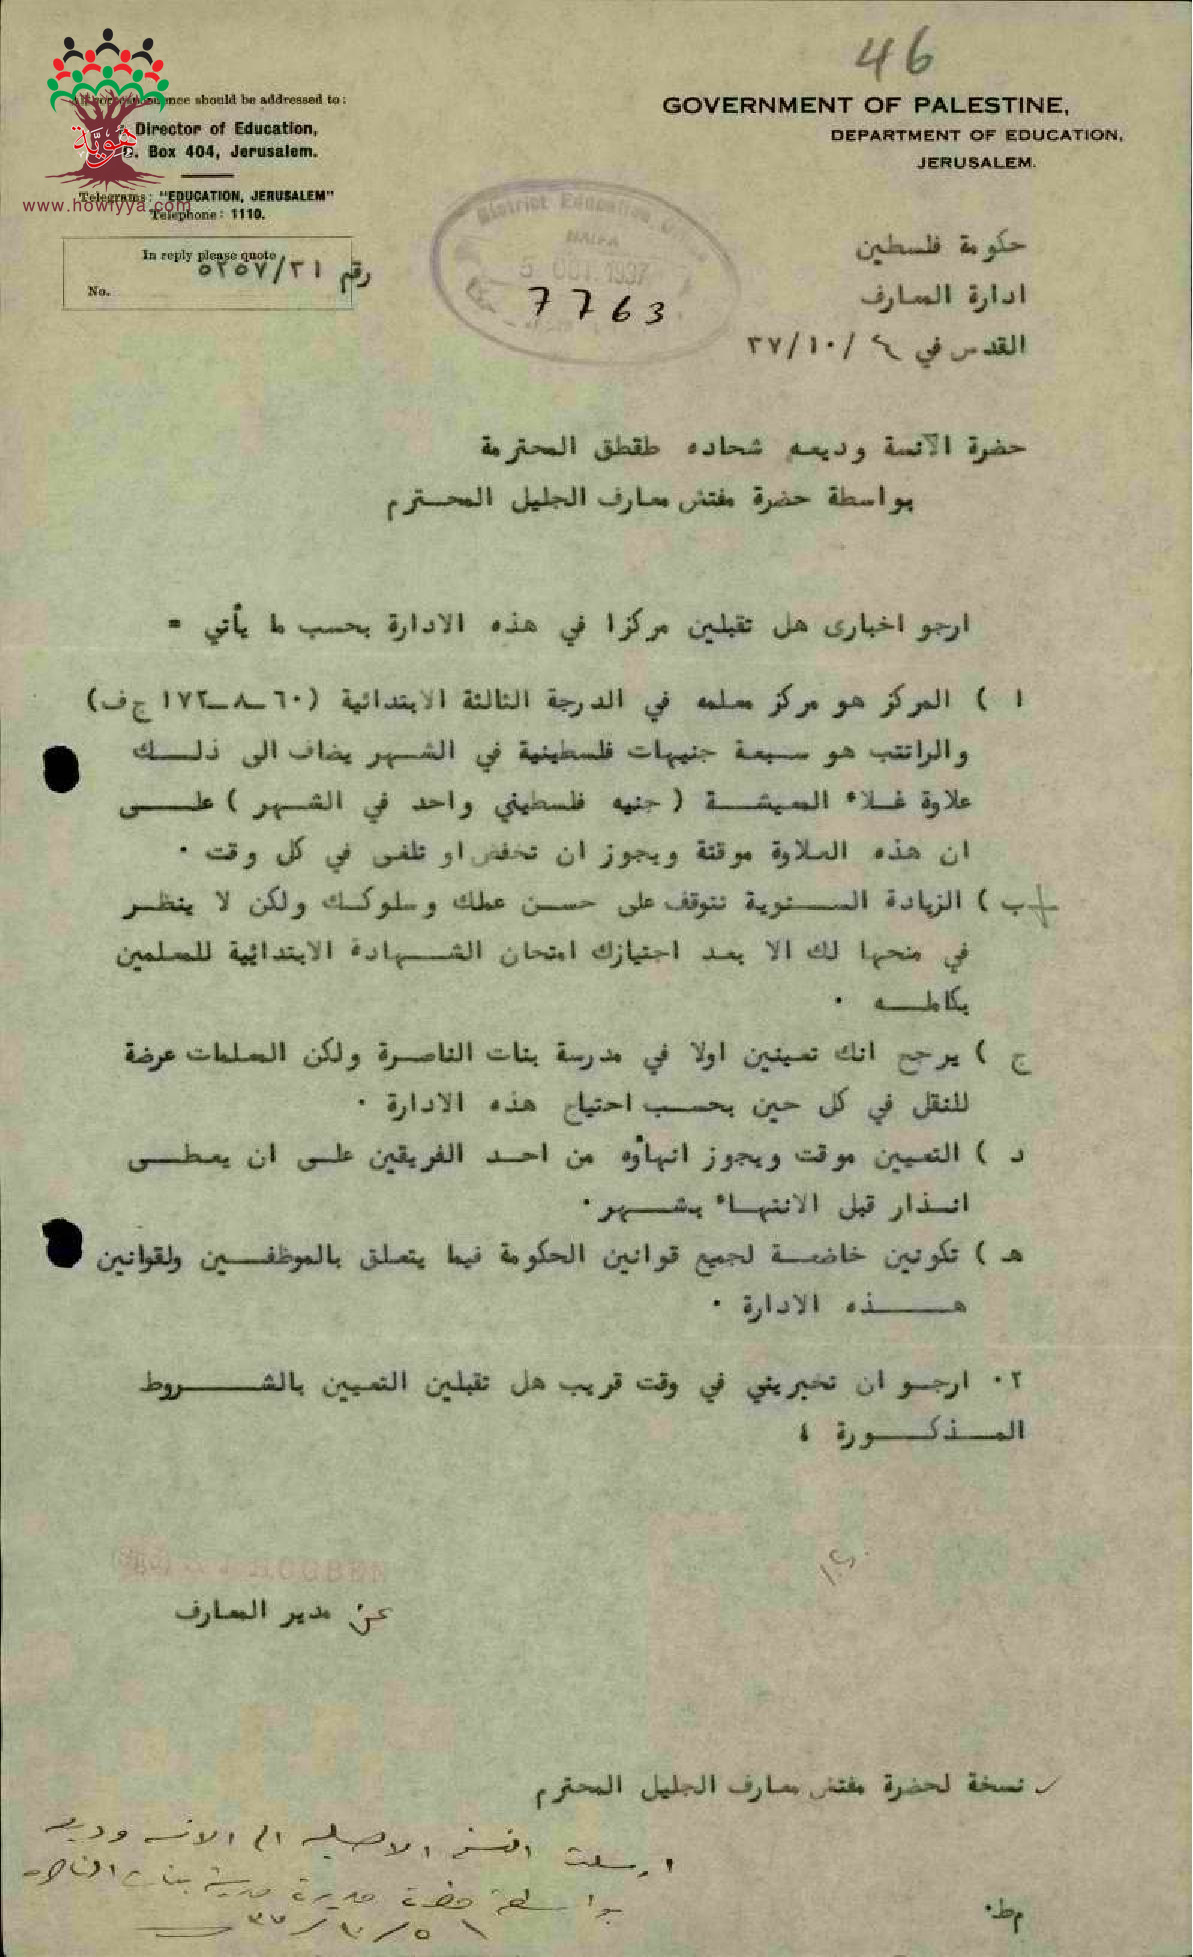 46
All correspondence should be addressed to:
Director of Education,
P.O. Box 404, Jerusalem.
Telegrams: "EDUCATION, JERUSALEM"
Telephone: 1110.
www.howiyya.com
هوية
In reply please quote
No.
رقم ٥٢٥٧/٢١
GOVERNMENT OF PALESTINE,
DEPARTMENT OF EDUCATION,
JERUSALEM.
District Education Office
HAIFA
5 OCT. 1937
7763
حكومة فلسطين
ادارة المعارف
القدس في ٤ /٣٧/١٠
حضرة الآنسة وديعه شحاده طقطق المحترمة
بواسطة حضرة مفتش معارف الجليل المحترم
ارجو اخبارى هل تقبلين مركزا في هذه الادارة بحسب ما يأتي =
ا ) المركز هو مركز معلمه في الدرجة الثالثة الابتدائية (٦٠-٨-١٧٢ ج ف)
والراتب هو سبعة جنيهات فلسطينية في الشهر يضاف الى ذلك
علاوة غلاء المعيشة ( جنيه فلسطيني واحد في الشهر ) على
ان هذه العلاوة موقتة ويجوز ان تخفض او تلغى في كل وقت ٠
ب ) الزيادة السنوية تتوقف على حسن عملك وسلوكك ولكن لا ينظر
في منحها لك الا بعد اجتيازك امتحان الشهادة الابتدائية للمعلمين
بكامله ٠
ج ) يرجح انك تعينين اولا في مدرسة بنات الناصرة ولكن المعلمات عرضة
للنقل في كل حين بحسب احتياج هذه الادارة ٠
د ) التعيين موقت ويجوز انهاؤه من احد الفريقين على ان يعطى
انذار قبل الانتهاء بشهر٠
هـ ) تكونين خاضعة لجميع قوانين الحكومة فيما يتعلق بالموظفين ولقوانين
هذه الادارة ٠
٢٠ ارجو ان تخبريني في وقت قريب هل تقبلين التعيين بالشروط
المذكورة ؛
عن مدير المعارف
نسخة لحضرة مفتش معارف الجليل المحترم
ارسلت النسخة الاصلية الى الانسه وديعه
بواسطة حضرة مديرة مدرسة بنات الناصره
م٠ط